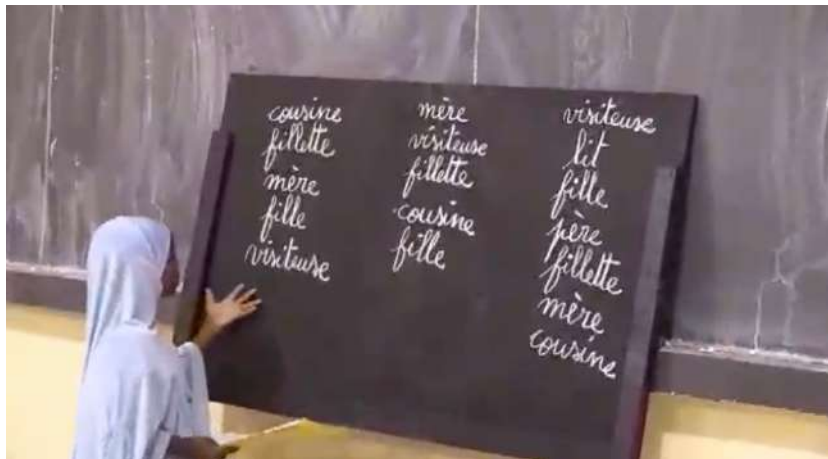 cousine
fillette
mère
fille
visiteuse
mère
visiteuse
fillette
cousine
fille
visiteuse
lit
fille
père
fillette
mère
cousine